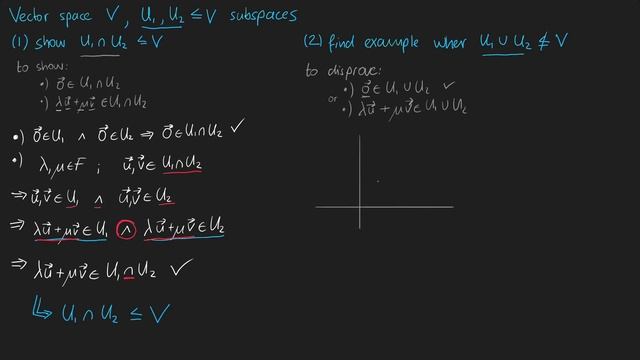 Vector space V, U₁, U₂ ≤ V subspaces
(1) show U₁ ∩ U₂ ≤ V
to show:
•) 0⃗ ∈ U₁ ∩ U₂
•) λu⃗ + μv⃗ ∈ U₁ ∩ U₂
•) 0⃗ ∈ U₁ ∧ 0⃗ ∈ U₂ ⇒ 0⃗ ∈ U₁ ∩ U₂ ✓
•) λ, μ ∈ F ; u⃗, v⃗ ∈ U₁ ∩ U₂
⇒ u⃗, v⃗ ∈ U₁ ∧ u⃗, v⃗ ∈ U₂
⇒ λu⃗ + μv⃗ ∈ U₁ ∧ λu⃗ + μv⃗ ∈ U₂
⇒ λu⃗ + μv⃗ ∈ U₁ ∩ U₂ ✓
↳ U₁ ∩ U₂ ≤ V
(2) find example when U₁ ∪ U₂ ≰ V
to disprove:
•) 0⃗ ∈ U₁ ∪ U₂ ✓
or •) λu⃗ + μv⃗ ∈ U₁ ∪ U₂